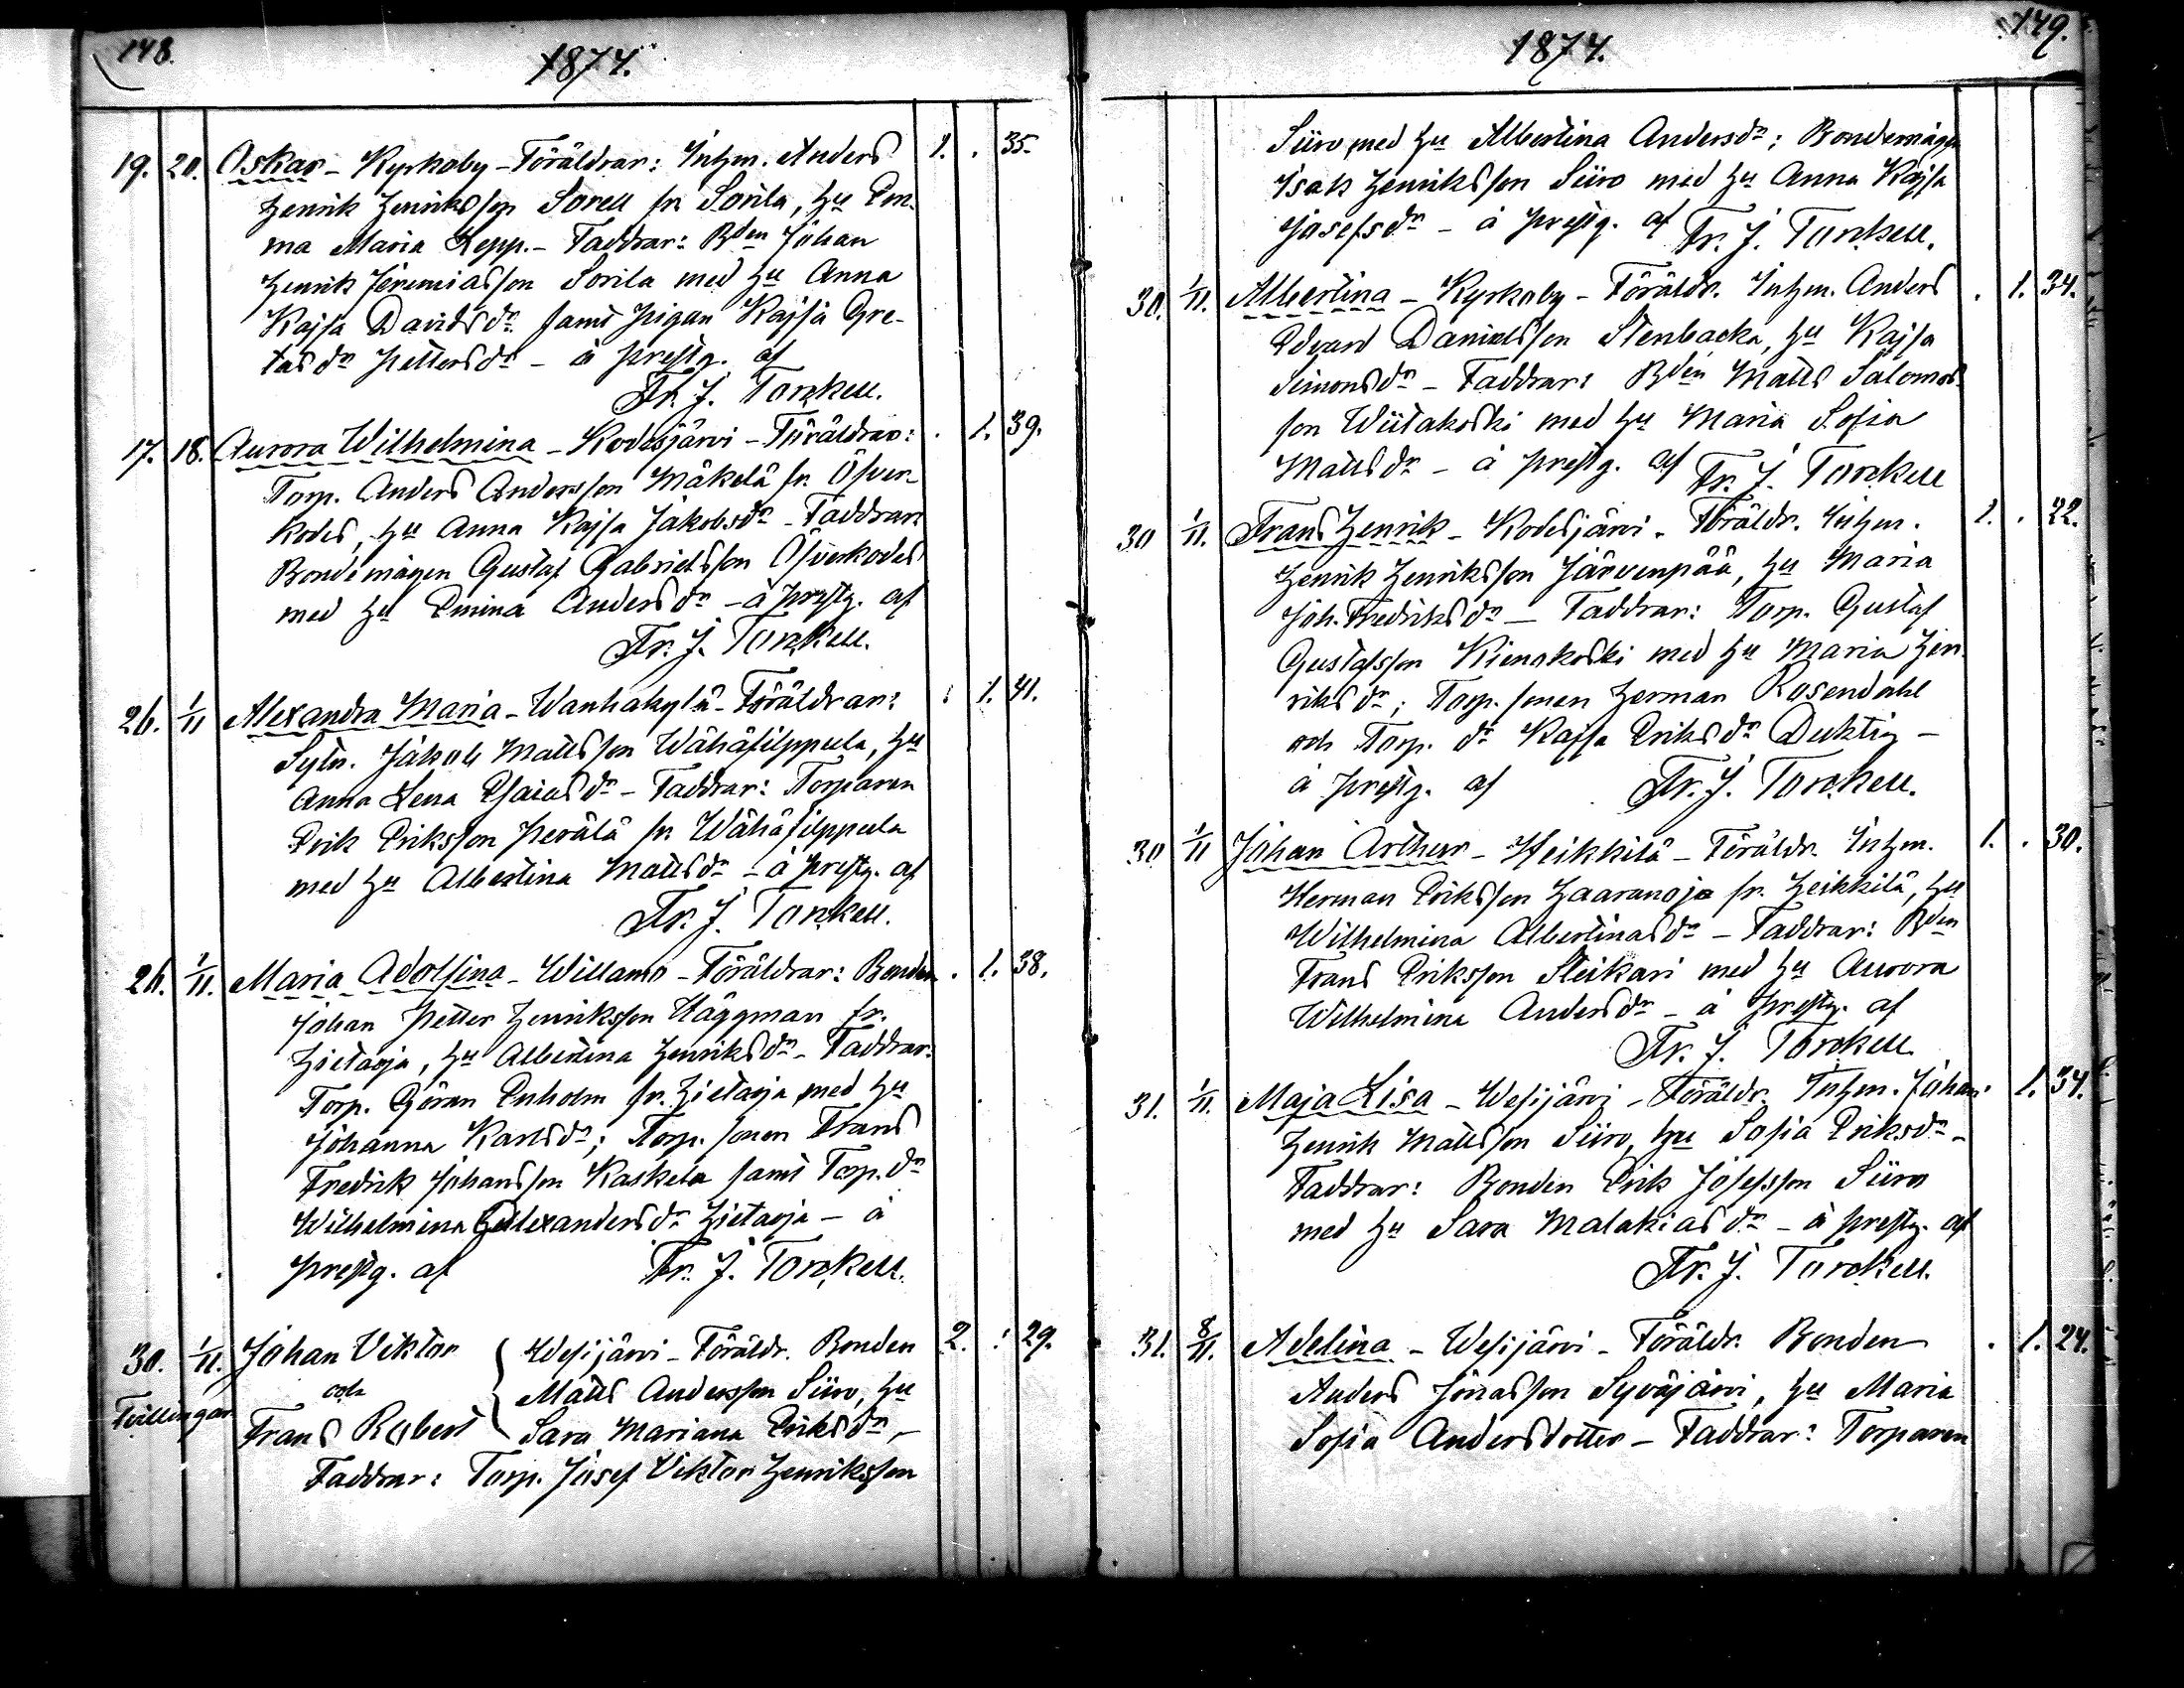 148.
1874.
19. 20. Oskar - Kyrkoby - Föräldrar: Inhm. Anders 1. . 35.
Henrik Henriksson Sorell fr. Sorila, hu Em-
ma Maria Lepp. - Faddrar: Bden Johan
Henrik Jeremiasson Sorila med hu Anna
Kajsa Davidsdr samt pigan Kajsa Gre-
tasdr Pettersdr - å prestg. af
Fr. J. Torckell.
17. 18. Aurora Wilhelmina - Kodesjärvi - Föräldrar: . 1. 39.
Torp. Anders Andersson Mäkelä fr. Öfver-
kodes, hu Anna Kajsa Jakobsdr - Faddrar:
Bondemågen Gustaf Gabrielsson Öfverkodes
med hu Emina Andersdr - å prestg. af
Fr. J. Torckell.
26. 1/11 Alexandra Maria - Wanhakylä - Föräldrar: . 1. 41.
Sytn. Jakob Mattsson Wähäfilppula, hu
Anna Lena Esaiasdr - Faddrar: Torparen
Erik Eriksson Perälä fr. Wähäfilppula
med hu Albertina Mattsdr - å prestg. af
Fr. J. Torckell.
26. 1/11. Maria Adolfina - Willamo - Föräldrar: Bonden . 1. 38.
Johan Petter Henriksson Häggman fr.
Hietaoja, hu Albertina Henriksdr - Faddrar:
Torp. Göran Enholm fr. Hietaoja med hu
Johanna Karlsdr; Torp. sonen Frans
Fredrik Johansson Kaskela samt Torp. dr
Wilhelmina Alexandersdr Hietaoja - å
prestg. af Fr. J. Torckell.
30. 1/11. Johan Viktor Wesijärvi - Föräldr. Bonden 2. . 29.
och Matts Andersson Siiro, hu
Tvillingar Frans Robert Sara Mariana Eriksdr -
Faddrar: Torp. Josef Viktor Henriksson
149.
1874.
Siiro med hu Albertina Andersdr; Bondemågen
Isak Henriksson Siiro med hu Anna Kajsa
Josefsdr - å prestg. af Fr. J. Torckell.
30. 1/11. Albertina - Kyrkoby - Föräldr. Inhm. Anders . 1. 34.
Edvard Danielsson Stenbacka, hu Kajsa
Simonsdr - Faddrar: Bden Matts Salomos-
son Wiitakoski med hu Maria Sofia
Mattsdr - å prestg. af Fr. J. Torckell
30 1/11. Frans Henrik - Kodesjärvi - Föräldr. Inhm. 1. . 22.
Henrik Henriksson Järvenpää, hu Maria
Joh. Fredriksdr - Faddrar: Torp. Gustaf
Gustafsson Kienokoski med hu Maria Hen-
riksdr; Torp. sonen Herman Rosendahl
och Torp. dr Kajsa Eriksdr Duktig -
å prestg. af Fr. J. Torckell.
30 1/11 Johan Arthur - Heikkilä - Föräldr. Inhm. 1. . 30.
Herman Eriksson Haaranoja fr. Heikkilä, hu
Wilhelmina Albertinasdr - Faddrar: Bden
Frans Eriksson Steikari med hu Aurora
Wilhelmina Andersdr - å prestg. af
Fr. J. Torckell.
31. 1/11. Maja Lisa - Wesijärvi - Föräldr. Inhm. Johan . 1. 34.
Henrik Mattsson Siiro, hu Sofia Eriksdr -
Faddrar: Bonden Erik Josefsson Siiro
med hu Sara Malakiasdr - å prestg. af
Fr. J. Torckell.
31. 8/11. Adelina - Wesijärvi - Föräldr. Bonden . 1. 24.
Anders Jonasson Syväjärvi, hu Maria
Sofia Andersdotter - Faddrar: Torparen